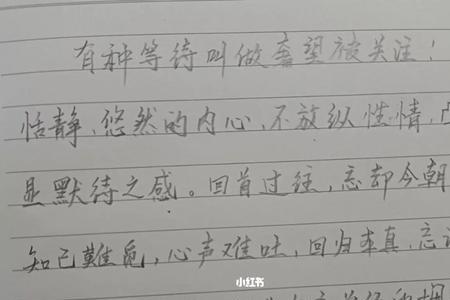 有种等待叫做奢望被关注:
恬静、悠然的内心,不放纵性情,凸
显默待之感。回首过往,忘却今朝
知己難觅,心声难吐,回归本真,忘
小红书